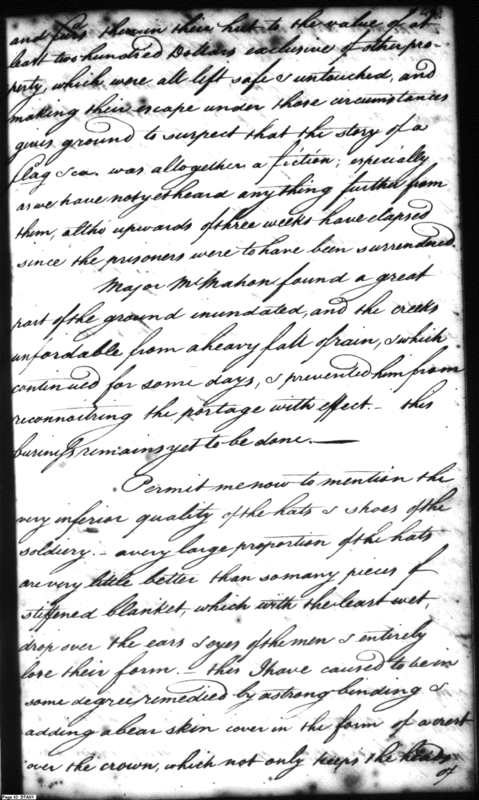 and furs then in their hut to the value of at
least two hundred Dollars exclusive of other pro-
perty, which were all left safe & untouched, and
making their escape under those circumstances
gives ground to suspect that the story of a
flag &ca. was altogether a fiction; especially
as we have not yet heard any thing further from
them, altho upwards of three weeks have elapsed
since the prisoners were to have been surrendered.
Major McMahon found a great
part of the ground inundated, and the creeks
unfordable from a heavy fall of rain, & which
continued for some days, & prevented him from
reconnoitring the portage with effect — this
business remains yet to be done. —
Permit me now to mention the
very inferior quality of the hats & shoes of the
soldiery. — a very large proportion of the hats
are very little better than so many pieces of
stiffened blanket, which with the least wet,
drop over the ears & eyes of the men & entirely
lose their form. — this I have caused to be in
some degree remedied by a strong binding &
adding a bear skin cover in the form of a crest
over the crown, which not only keeps the heads
of